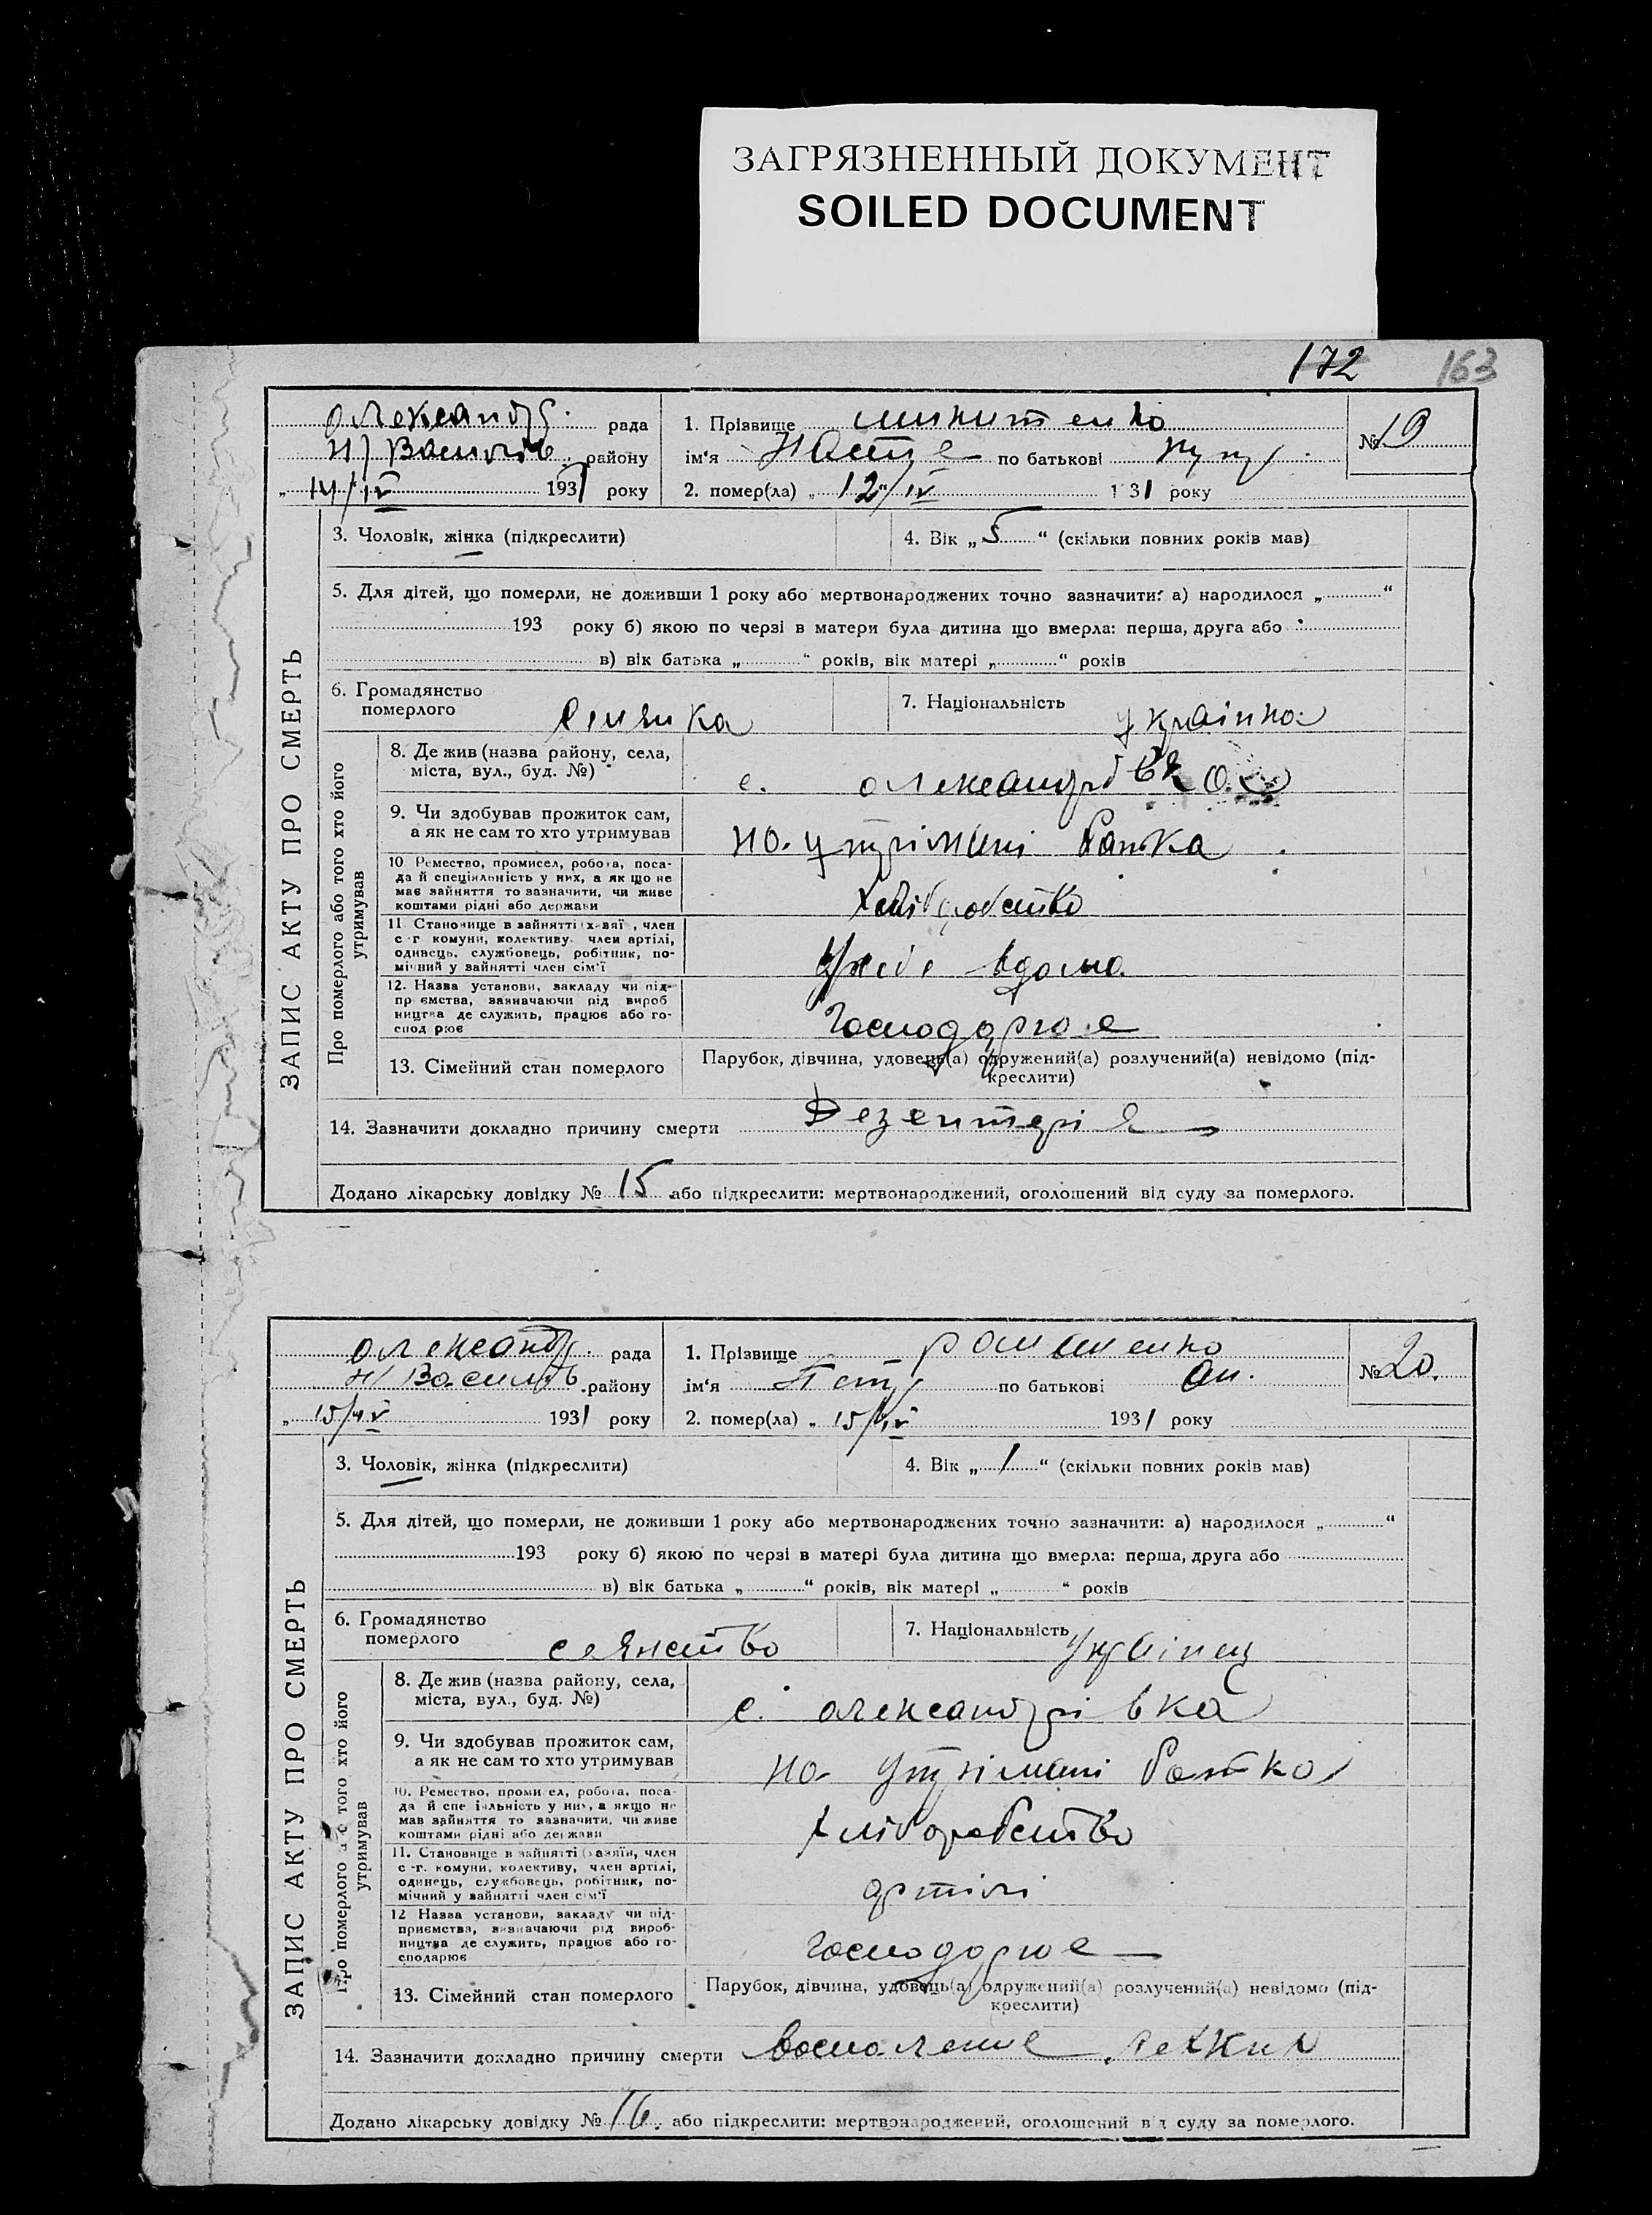 ЗАГРЯЗНЕННЫЙ ДОКУМЕНТ
SOILED DOCUMENT
172 163
Олександр. рада
Н/Васильев. району
„ 14/IV 1931 року
1. Прізвище
ім‘я Настя по батькові
2. помер(ла) „ 12“/IV 1931 року
№ 19
ЗАПИС АКТУ ПРО СМЕРТЬ
3. Чоловік, жінка (підкреслити)
4. Вік „ 5 “ (скільки повних років мав)
5. Для дітей, що померли, не доживши 1 року або мертвонароджених точно зазначити: а) народилося „ “
193 року б) якою по черзі в матери була дитина що вмерла: перша, друга або
в) вік батька „ “ років, вік матері „ “ років
6. Громадянство
померлого
7. Національність українка
Про померлого або того хто його
утримував
8. Де жив (назва району, села,
міста, вул., буд. №)
с. Олександрівка
9. Чи здобував прожиток сам,
а як не сам то хто утримував
на утрімані батька
10. Ремество, промисел, робота, поса-
да й спеціяльність у них, а як що не
має зайняття то зазначити, чи живе
коштами рідні або держави
хліборобство
11. Становище в зайнятті (х-зяї , член
с-г комуни, колективу, член артілі,
одинець, службовець, робітник, по-
мічний у зайнятті член сім'ї
у себе вдома
12. Назва установи, закладу чи під-
пр ємства, зазначаючи рід вироб
ництва де служить, працює або го-
спод рює
господорює
13. Сімейний стан померлого
Парубок, дівчина, удовець(а) одружений(а) розлучений(а) невідомо (під-
креслити)
14. Зазначити докладно причину смерти Дезентерія
Додано лікарську довідку № 15 або підкреслити: мертвонароджений, оголошений від суду за померлого.
Олександр. рада
Н/Васильев. району
„ 15/IV 1931 року
1. Прізвище
ім‘я Петр по батькові Ан.
2. помер(ла) „ 15/IV 1931 року
№ 20.
ЗАПИС АКТУ ПРО СМЕРТЬ
3. Чоловік, жінка (підкреслити)
4. Вік „ 1 “ (скільки повних років мав)
5. Для дітей, що померли, не доживши 1 року або мертвонароджених точно зазначити: а) народилося „ “
193 року б) якою по черзі в матері була дитина що вмерла: перша, друга або
в) вік батька „ “ років, вік матері „ “ років
6. Громадянство
померлого
селянство
7. Національність Українец
Про померлого або того хто його
утримував
8. Де жив (назва району, села,
міста, вул., буд. №)
с. Олександрівка
9. Чи здобував прожиток сам,
а як не сам то хто утримував
на утрімані батька
10. Ремество, промисел, робота, поса-
да й спеціяльність у них, а якщо не
мав зайняття то зазначити, чи живе
коштами рідні або держави
хліборобство
11. Становище в зайнятті (хазяїн, член
с.-г. комуни, колективу, член артілі,
одинець, службовець, робітник, по-
мічний у зайнятті член сім'ї
артілі
12 Назва установи, закладу чи під-
приємства, визначаючи рід вироб-
ництва де служить, працює або го-
сподарює
господорює
13. Сімейний стан померлого
Парубок, дівчина, удовець(а) одружений(а) розлучений(а) невідомо (під-
креслити)
14. Зазначити докладно причину смерти воспаление легких
Додано лікарську довідку № 16. або підкреслити: мертвонароджений, оголошений від суду за померлого.